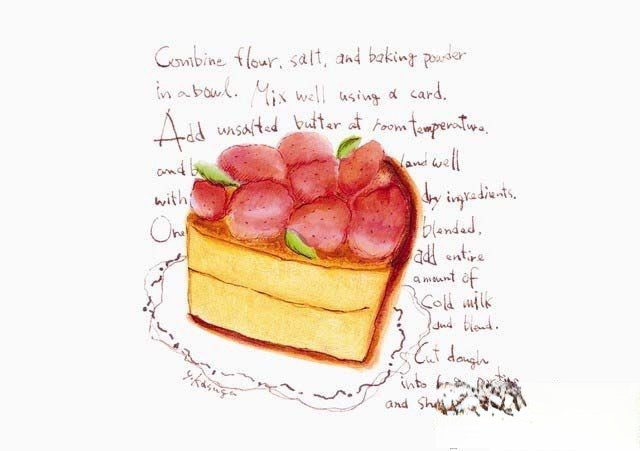 Combine flour, salt, and baking powder
in a bowl. Mix well using a card.
Add unsalted butter at room temperature,
and b land well
with dry ingredients.
One blended,
add entire
amount of
Cold milk
and blend.
Cut dough
into
and sh
Y.Kasuga